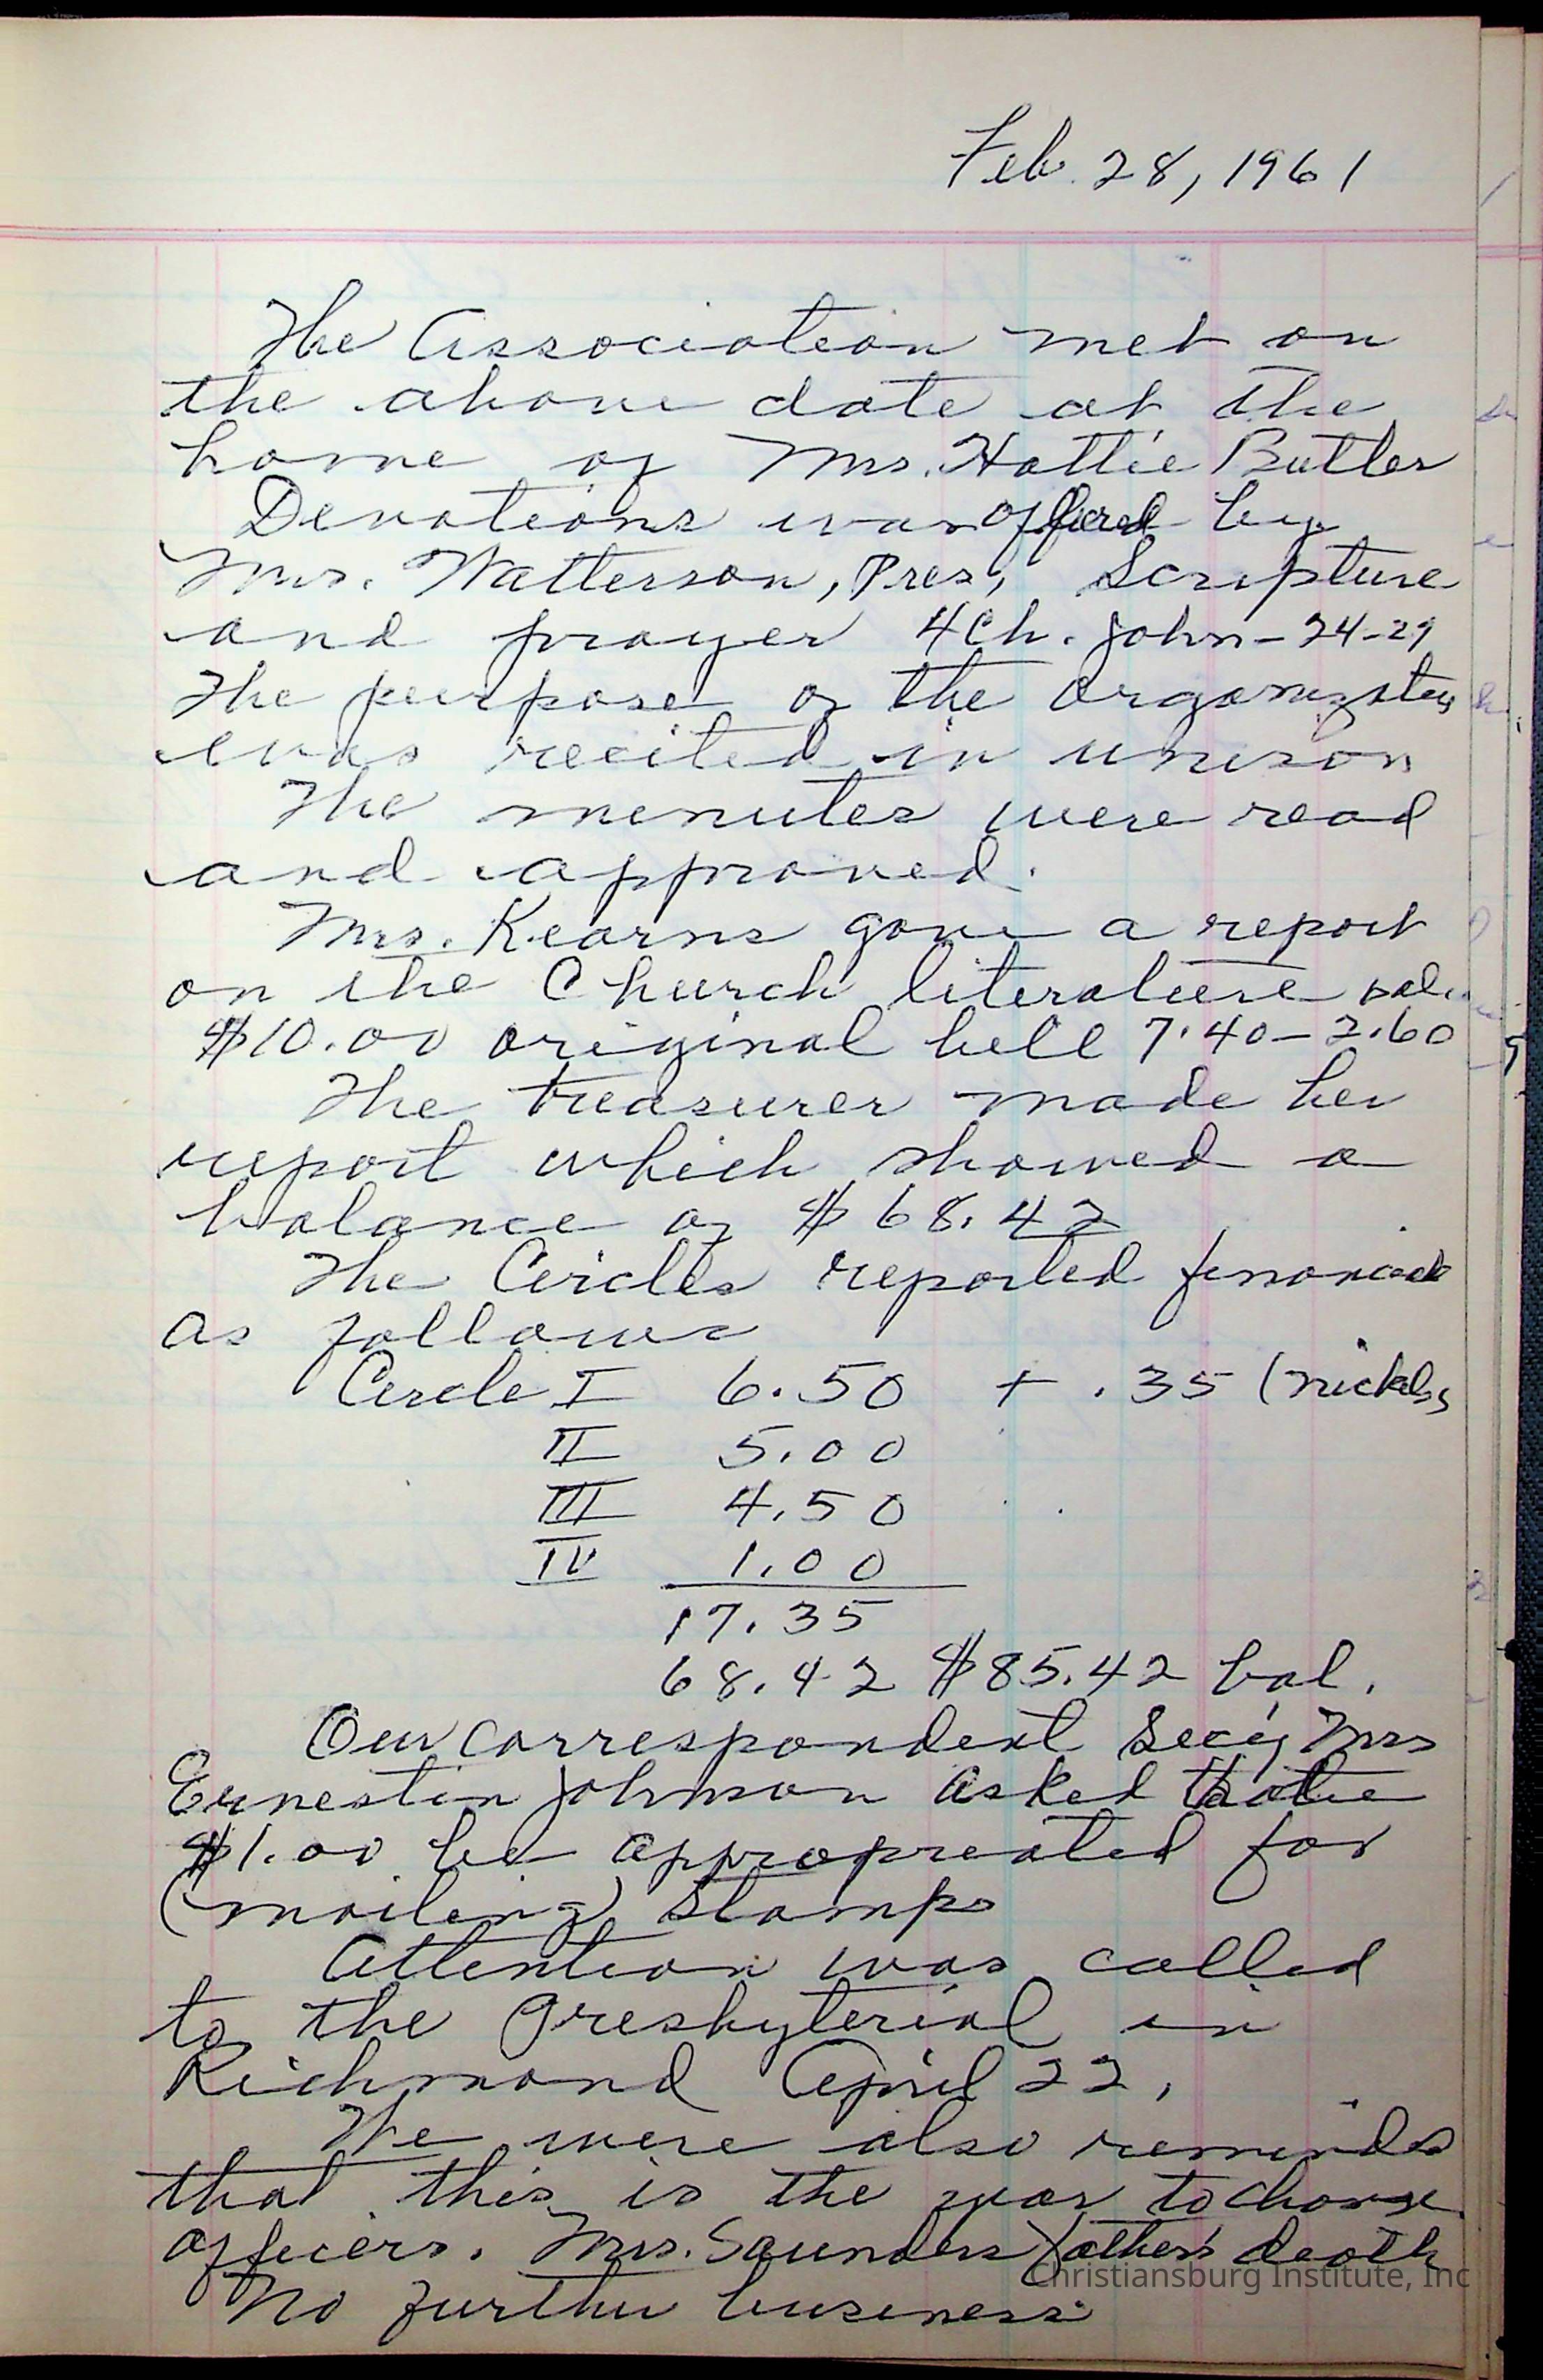 Feb. 28, 1961
The Association met on
the above date at the
home of Mrs. Hattie Butler
Devotions was offered by
Mrs. Watterson, Pres, Scripture
and prayer 4 Ch. John - 24-29
The purpose of the organization
was recited in unison
The minutes were read
and approved.
Mrs. Kearns gave a report
on the Church literature sale
$10.00 original bill 7.40 - 2.60
The treasurer made her
report which showed a
balance of $68.42
The Circles reported financial
as follows
Circle I 6.50 + .35 (nickels
II 5.00
III 4.50
IV 1.00
17.35
68.42 $85.42 bal.
Our Correspondent Sec'y Mrs
Ernestin Johnson asked that
$1.00 be appropreated for
(mailing) Stamps
Attention was called
to the Presbyterial in
Richmond April 22,
We were also reminded
that this is the year to change
officers. Mrs. Saunders father's death
No further business
Christiansburg Institute, Inc